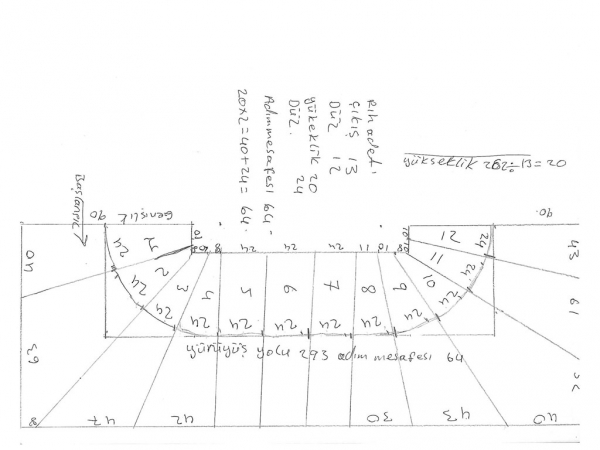 Rıh adet.
Çıkış 13
Düz 12
yükeklik 20
Düz. 24
Adım mesafesi 64
20x2=40+24=64
yükseklik 262÷13=20
Başlangıç
90 Genişlik
90.
yürüyüş yolu 293 adım mesafesi 64
1 2 3 4 5 6 7 8 9 10 11 12
24 24 24 24 24 24 24 24 24 24 24 24
10 8 24 24 24 24 11 10 08 10
40
39
47 42 30 43 40
43
61